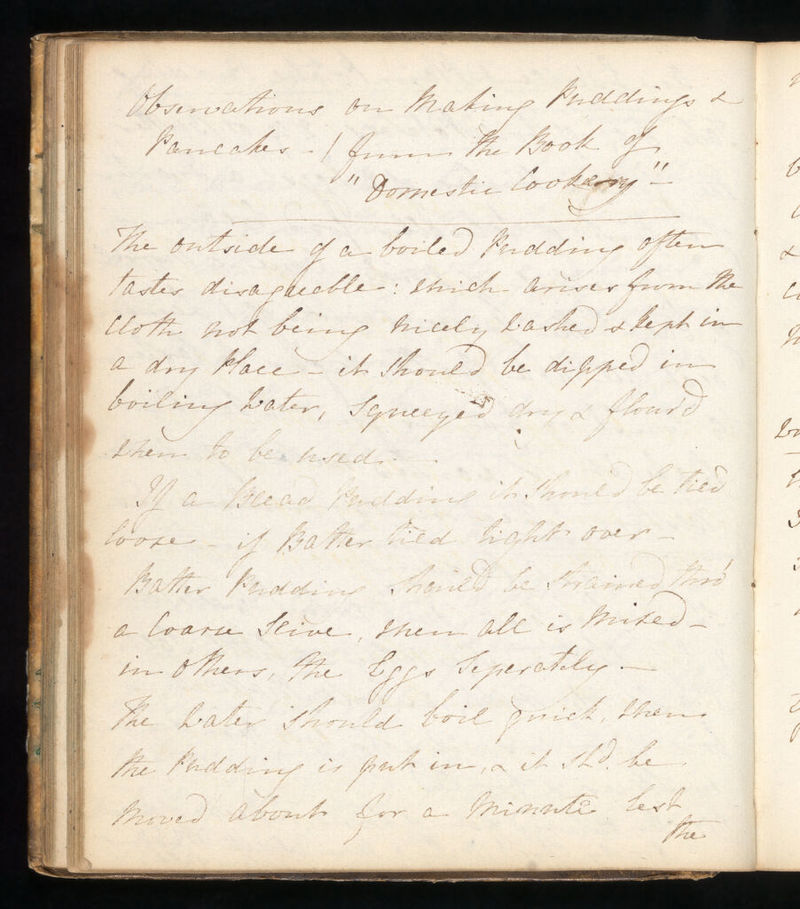 Observations on Making Puddings &
Pancakes - / from the Book of
"Domestic Cookery" -
The outside of a boiled Pudding often
tastes disagreeable : which arises from the
Cloth not being nicely washed & kept in
a dry Place - it should be dipped in
boiling Water, Squeezed dry & flour'd
when to be used. -
If a Bread Pudding it should be tied
loose - if Batter tied tight over -
Batter Pudding should be strained thro'
a Coarse Seive, when all is Mixed -
in others, the Eggs Seperately -
The Water should boil quick, when
the Pudding is put in, & it shd. be
Moved about for a Minute lest
the